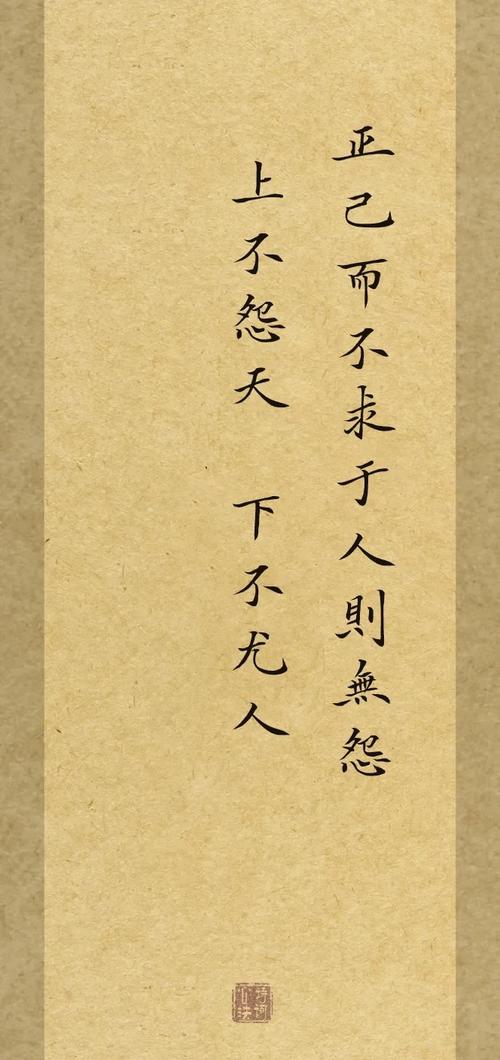 正己而不求于人則無怨
上不怨天　下不尤人